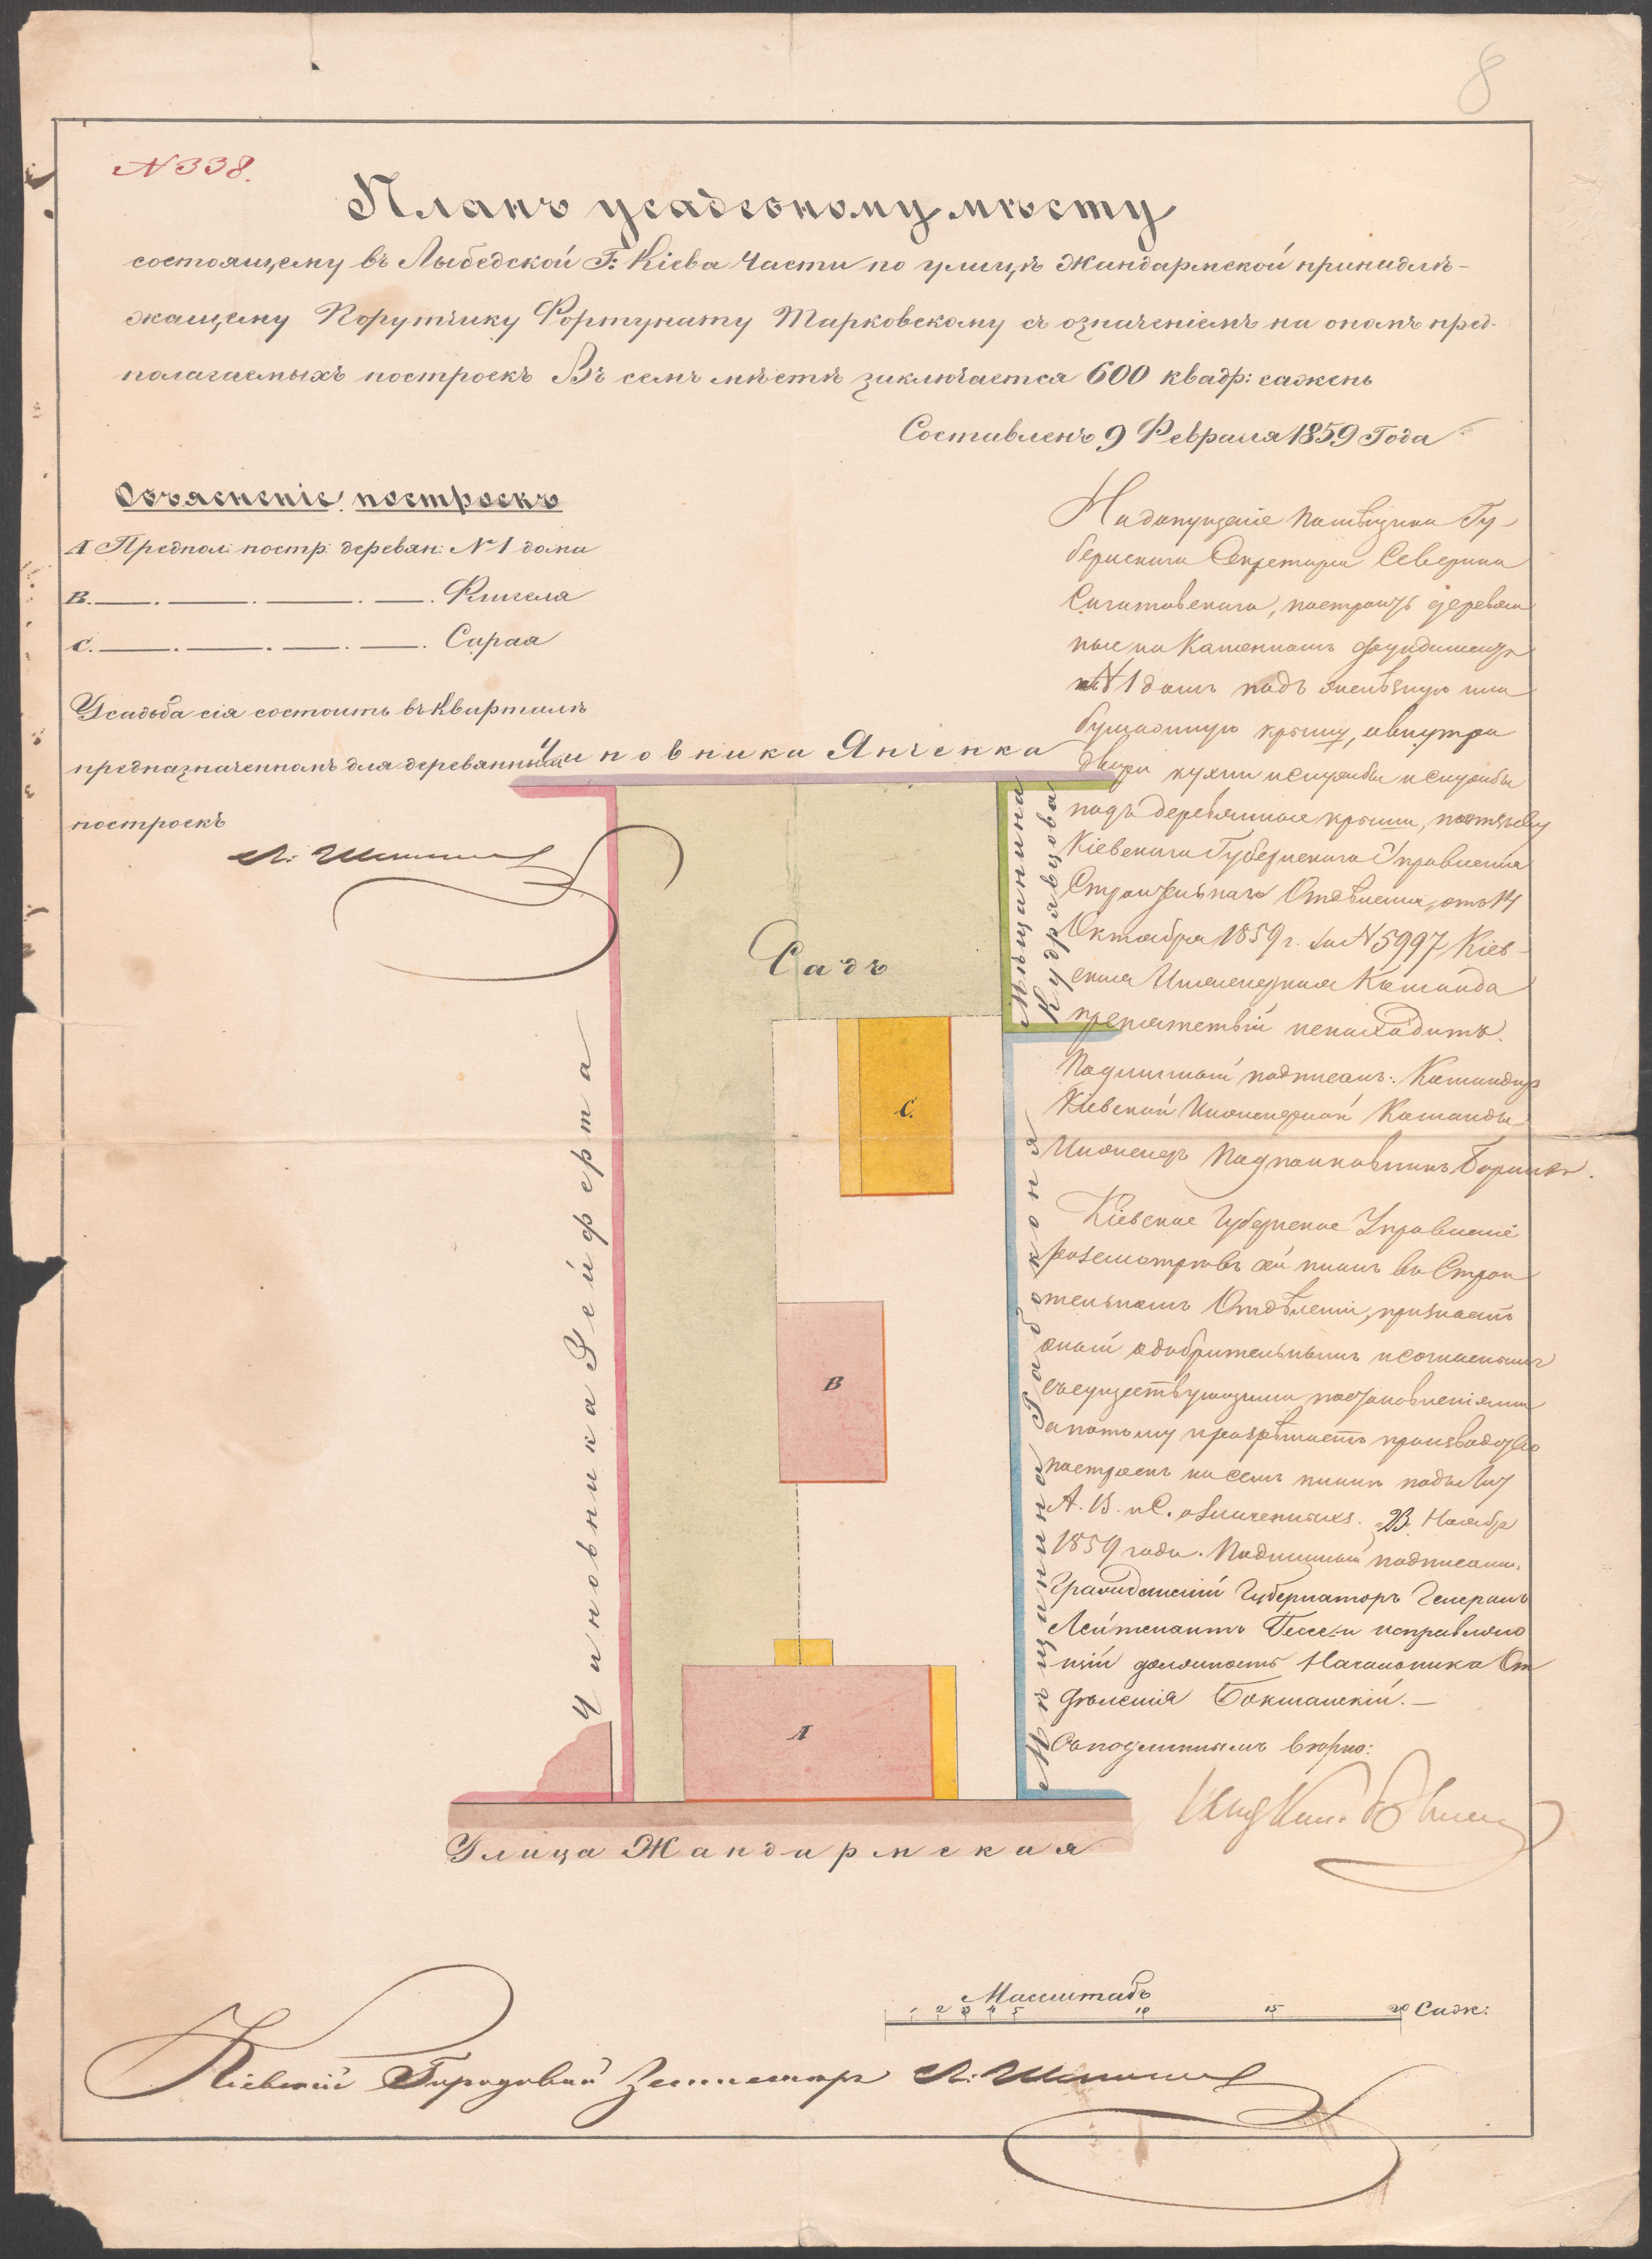 8
N 338.
Планъ усадебному мѣсту
состоящему въ Лыбедской Г: Кіева Части по улицѣ Жандармской принадлѣ-
жащему Порутчику Фортунату Тарковскому съ означеніемъ на ономъ пред-
полагаемыхъ построекъ Въ семъ мѣстѣ заключается 600 квадр: сажень
Составленъ 9 Февраля 1859 Года
Объясненіе построекъ
А Предпол: постр: деревян: N 1 дома
В. —. —. —. —. Флигеля
С. —. —. —. —. Сарая
Усадьба сія состоитъ въ Кварталѣ
предназначенномъ для деревянныхъ
построекъ
Чиновника Янченка
Мѣщанина
Кудрявцова
Садъ
С.
В
А
Чиновника Зейферта
Мѣщанина Рабоконя
Улица Жандармская
На допущеніе Помѣщика Гу-
бернскаго Секретаря Северина
построить деревян
ные на Каменномъ фундаментѣ
N 1 домъ подъ желѣзную или
бумажную крышу, а внутри
двора кухни и службы и службы
подъ деревянные крыши, по отзыву
Кіевскаго Губернскаго Управленія
Строительнаго Отдѣленія, отъ 14
Октября 1859 г. за N 5997 Кіев-
ская Инженерная Команда
препятствій не находитъ.
Подлинный подписалъ: Командиръ
Кіевской Инженерной Команды
Инженеръ Подполковникъ
Кіевское Губернское Управленіе
разсмотрѣвъ сей планъ въ Строи
тельномъ Отдѣленіи, признаетъ
оный одобрительнымъ и согласнымъ
съ существующими постановленіями
а потому и разрѣшаетъ производство
построекъ на семъ планѣ подъ Лит
А. В. и С. означенныхъ. Ноября
1859 года. Подлинный подписали:
Гражданскій Губернаторъ Генералъ
Лейтенантъ Гессе и исправляю
щій должность Начальника От
дѣленія Бокщанскій. —
Съ подлиннымъ вѣрно:
Масштабъ
1 2 3 4 5 10 15 20 Саж:
Кіевскій Городовой Землемѣръ